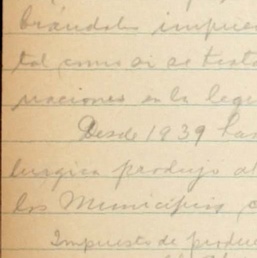 brándoles impues
tal como si se trata
naciones en la lega
Desde 1939 has
lurgica produjo al
los Municipios, c
Impuesto de produc